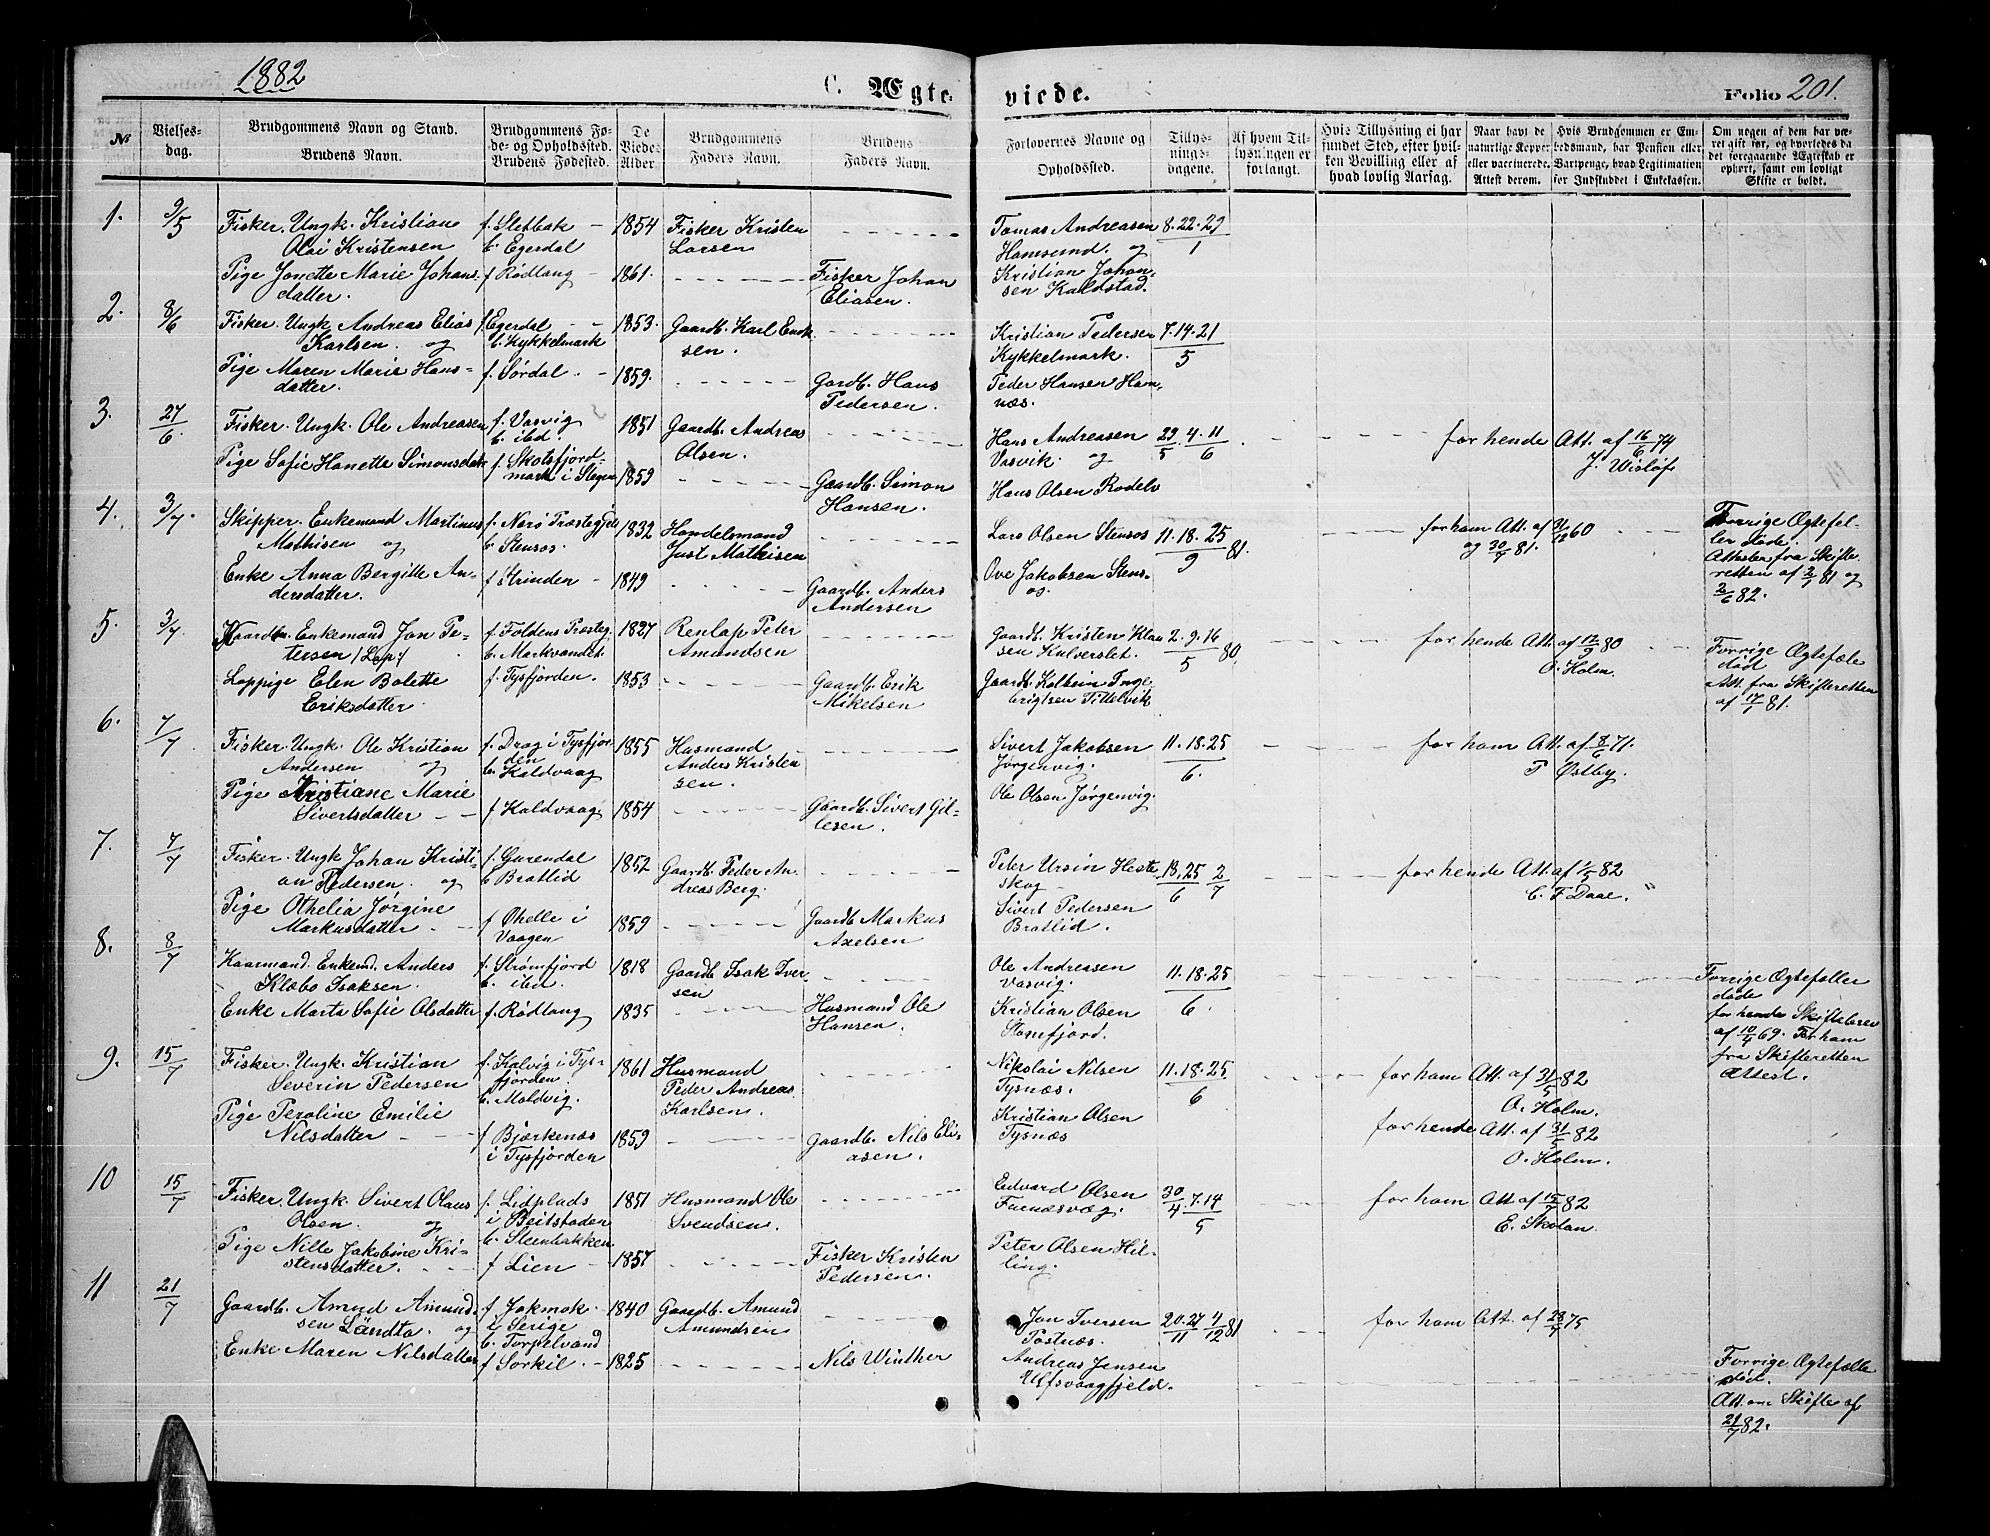 1882
C. Ægte-
viede.
Folio 201.
№
Vielses-
dag.
Brudgommens Navn og Stand.
Brudens Navn.
Brudgommens Fø-
de- og Opholdsted.
Brudens Fødested.
De
Viedes
Alder.
Brudgommens
Faders Navn.
Brudens
Faders Navn.
Forlovernes Navne og
Opholdsted.
Tillys-
nings-
dagene.
Af hvem Til-
lysningen er
forlangt.
Hvis Tillysning ei har
fundet Sted, efter hvil-
ken Bevilling eller af
hvad lovlig Aarsag.
Naar havt de
naturlige Kopper
eller vaccinerede.
Attest derom.
Hvis Brudgommen er Em-
bedsmand, har Pension eller
Vartpenge, hvad Legitimation
for Indskuddet i Enkekassen.
Om nogen af dem har væ-
ret gift før, og hvorledes da
det foregaaende Ægteskab er
ophørt, samt om lovligt
Skifte er holdt.
1. 9/5 Fisker. Ungk. Kristian f. Sletbak 1854 Fisker Kristen Tomas Andreasen 8. 22. 29/1
Olai Kristensen b. Egerdal Larsen Hamsund. og
Pige Jonette Marie Johans- f Rødtang 1861. Fisker Johan Kristian Johan-
datter. Eliasen. sen Kaldstad.
2. 8/6 Fisker. Ungk Andreas Elias f. Egerdal 1853. Gaardb. Karl Erik- Kristian Pedersen 7. 14. 21/5
Karlsen. og b. Kykkelmark sen. Kykkelmark.
Pige Maren Marie Hans- f. Sørdal. 1859. Gardb. Hans Peder Hansen Ham-
datter. Pedersen. næs.
3. 27/6. Fisker. Ungk. Ole Andreasen f. Vasvig 1851 Gaardb. Andreas Hans Andreasen 29/5 4. 11/6 for hende Att. af 16/6 74
b. ibd. Olsen. Vasvik. og J. Wisløf.
Pige Sofie Hanette Simonsdatr f. Skotsfjord-
mark i Stegen 1859 Gaardb. Simon Hans Olsen Rodelv
Hansen.
4. 3/7. Skipper. Enkemand Martinus f. Nærø Præstegjeld 1832 Handelsmand Lars Olsen Stensos 11. 18. 25/9 81. for ham Att. af 31/12 60 Forrige Ægtefel-
Mathisen og b. Stensos. Just Mathisen og 30/7 81. ler døde.
Enke Anna Bergitte An- f Grinden 1849 Gaardb. Anders Ove Jakobsen Stens- Attester fra Skifte-
dersdatter. Andersen os. retten af 2/7 81 og
2/6 82.
5. 3/7. Gaardbr. Enkemand Jon Pe- f. Foldens Præsteg. 1827 Renlap Peter Gaardb. Kristen Klau- 2. 9. 16/5 80. for hende Att. af 17/9 80 Forrige Ægtefæle
tersen /Lap/ b. Markvandet. Amundsen sen Kalverslet. O. Holm. død
Lappige Elen Bolette f. Tysfjorden. 1853 Gaardb. Erik Gaardb. Kolbein Inge- Att. fra Skifteretten
Eriksdatter. Mikelsen brigtsen Tittelvik af 17/7 81.
6. 7/7 Fisker. Ungk. Ole Kristian f. Drag i Tysfjor- 1855 Husmand Sivert Jakobsen 11. 18. 25/6. for ham Att. af 8/6 71.
Andersen og den Anders Kristen- Jørgenvig. P Østby.
b. Kaldvaag sen.
Pige Kristiane Marie Ole Olsen Jørgenvig.
Sivertsdatter f Kaldvaag 1854 Gaardb. Sivert Gil-
lesen.
7. 7/7 Fisker. Ungk Johan Kristi- f. Gurendal 1852 Gaardb. Peder An- Peter Ursin Heste- 18, 25/6 2/7 for hende Att. af 1/5 82
an Pedersen. og b Bratlid dreas Berg. skog C. F. Daae.
Pige Othelia Jørgine f Ohelle i 1859 Gaardb Markus Sivert Pedersen
Markusdatter Vaagen Axelsen Bratlid.
8. 8/7 Kaarmand. Enkemd. Anders f. Strømfjord 1818 Gaardb Isak Iver- Ole Andreasen 11. 18. 25/6. Forrige Ægtefæller
Klæbo Isaksen. b. ibd sen Vasvig. døde
Enke Marta Sofie Olsdatter f. Rødtang 1835 Husmand Ole Kristian Olsen for hende Skiftebrev
Hansen. Stomfjord. af 10/5 69. For ham
fra Skifteretten
Attest.
9. 15/7 Fisker. Ungk. Kristian f. Kalvig i Tys- 1861 Husmand Nikolai Nilsen 11. 18. 25/6 for ham Att. af 31/5 82
Severin Pedersen fjorden. Peder Andreas Tysnæs. O. Holm.
b. Moldvig. Karlsen.
Pige Peroline Emilie Kristian Olsen for hende Att. af 31/5 82
Nilsdatter f Bjærkenæs 1859 Gaardb. Nils Eli- Tysnæs O. Holm.
i Tysfjorden asen.
10 15/7 Fisker. Ungk. Sivert Olaus f. Lidplads 1851 Husmand Ole Edvard Olsen 30/4. 7. 14/5 for ham Att af 15/7 82
Olsen. og i Beitstaden Svendsen. Furnæsvæg. E. Skolan.
b. Steenbakken
Pige Nille Jakobine Kri- f Lien 1857 Fisker Kristen Peter Olsen Hil-
stensdatter. Pedersen. ling.
11 21/7 Gaardb. Amund Amund- f Jokmok 1840 Gaardb. Amund Jon Iversen 20. 27/11 4/12 81 for ham Att. af 28/7 75
sen Ländta. og i Serige Amundsen Postnæs.
b. Torpelvand
Enke Maren Nilsdatter f Sorkil. 1825 Nils Winther Andreas Jensen Forrige Ægtefælle
Ulfsvaagfjeld. død.
Att. om Skifte af
21/7 82.